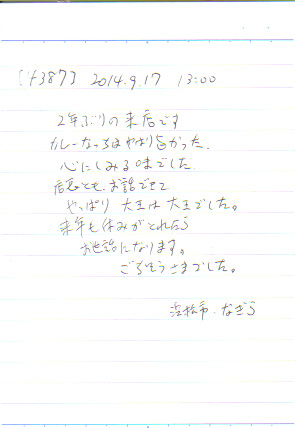 [4387] 2014.9.17 13:00
2年ぶりの来店です
カレーなっちはやはり旨かった.
心にしみる味でした
店長とも、お話できて
やっぱり 大王は大王でした。
来年も休みがとれたら
お世話になります。
ごちそうさまでした。
浜松市